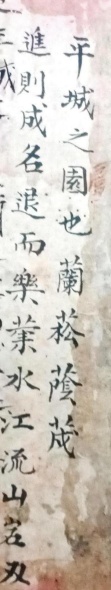 平城之園也蘭菘蔭茂
進則成名退而樂業水江流山宕双